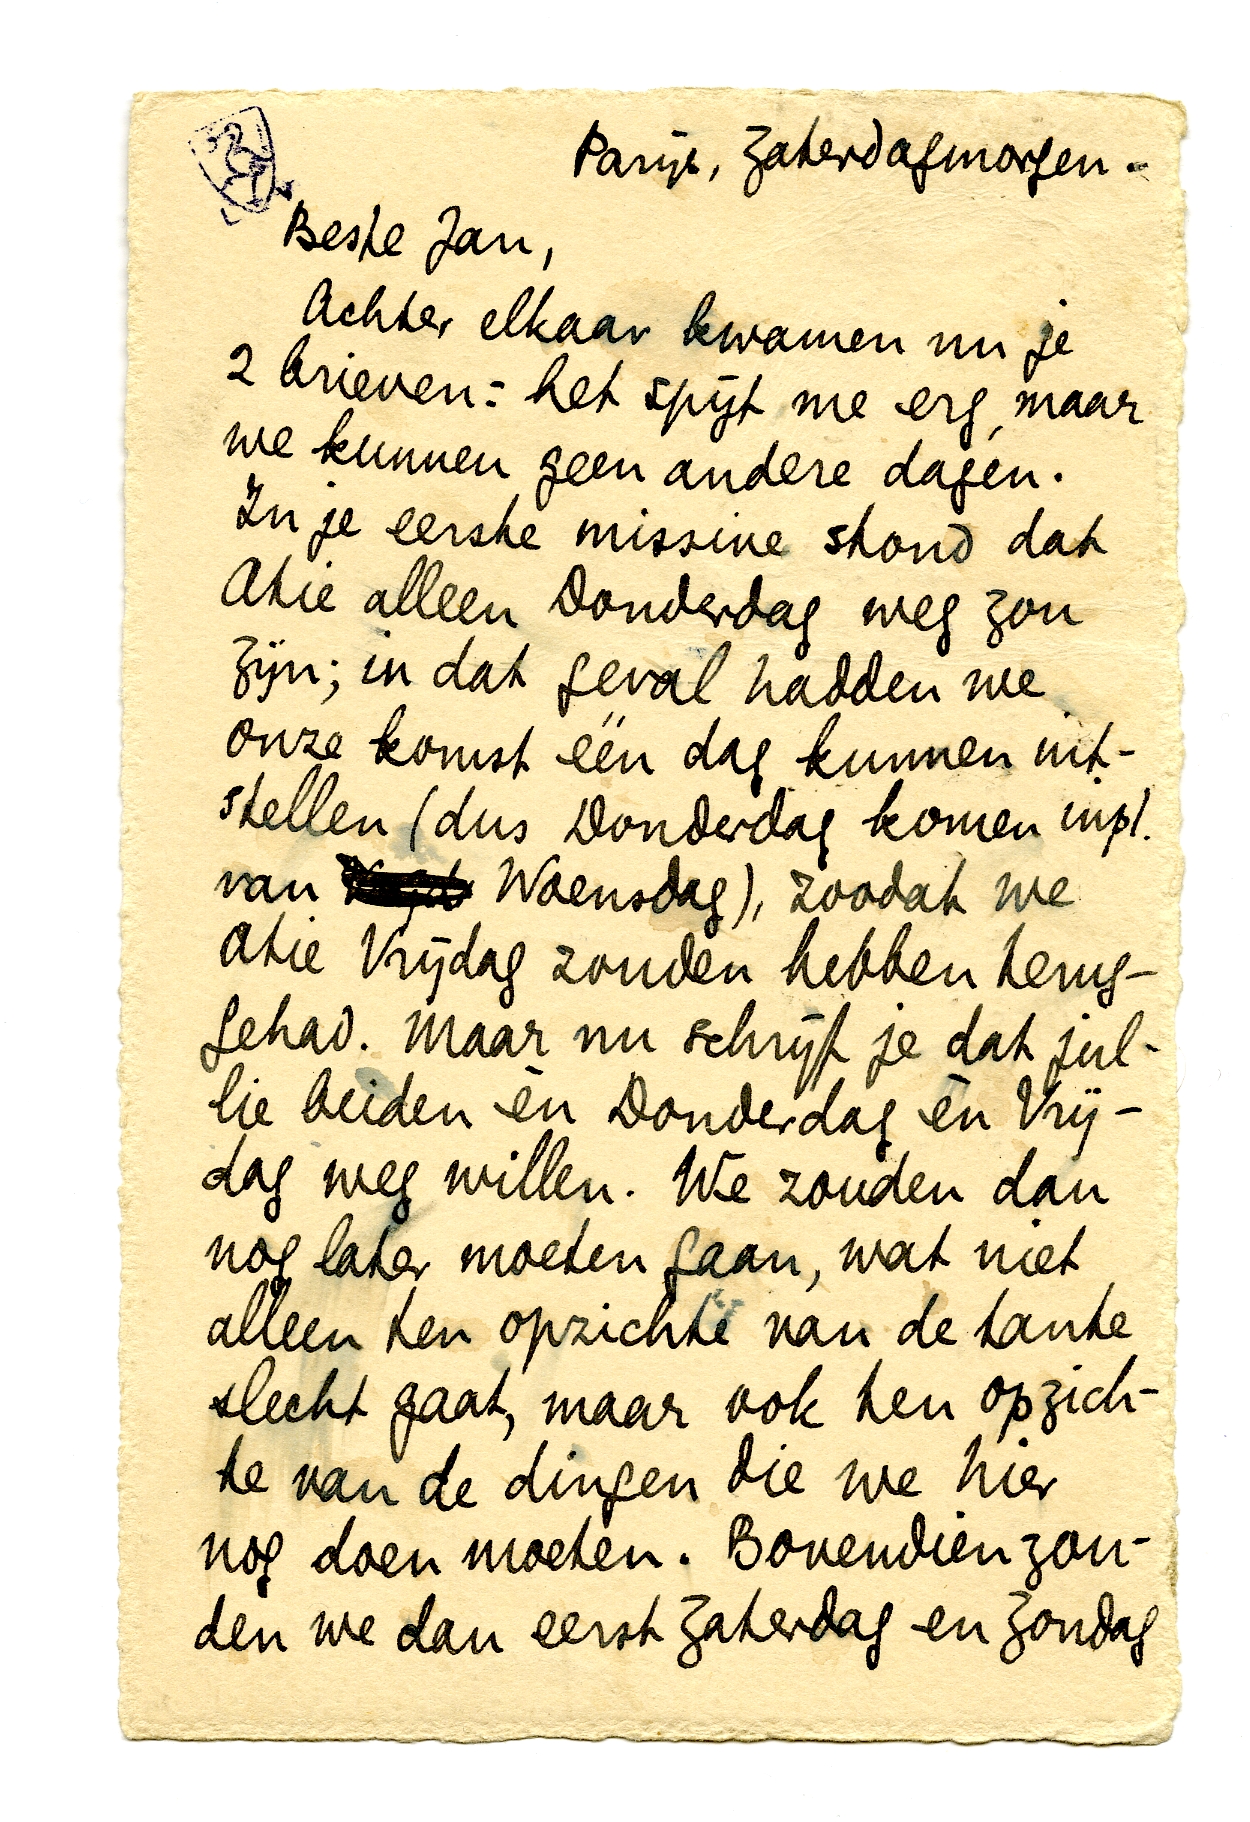 Parijs, Zaterdagmorgen.
Beste Jan,
Achter elkaar kwamen nu je
2 brieven: het spijt me erg, maar
we kunnen geen andere dagen.
In je eerste missive stond dat
Atie alleen Donderdag weg zou
zijn; in dat geval hadden we
onze komst één dag kunnen uit-
stellen (dus Donderdag komen inpl.
van Woensdag), zoodat we
Atie Vrijdag zouden hebben terug-
gehad. Maar nu schrijf je dat jul-
lie beiden èn Donderdag èn Vrij-
dag weg willen. We zouden dan
nog later moeten gaan, wat niet
alleen ten opzichte van de tante
slecht gaat, maar ook ten opzich-
te van de dingen die we hier
nog doen moeten. Bovendien zou-
den we dan eerst Zaterdag en Zondag